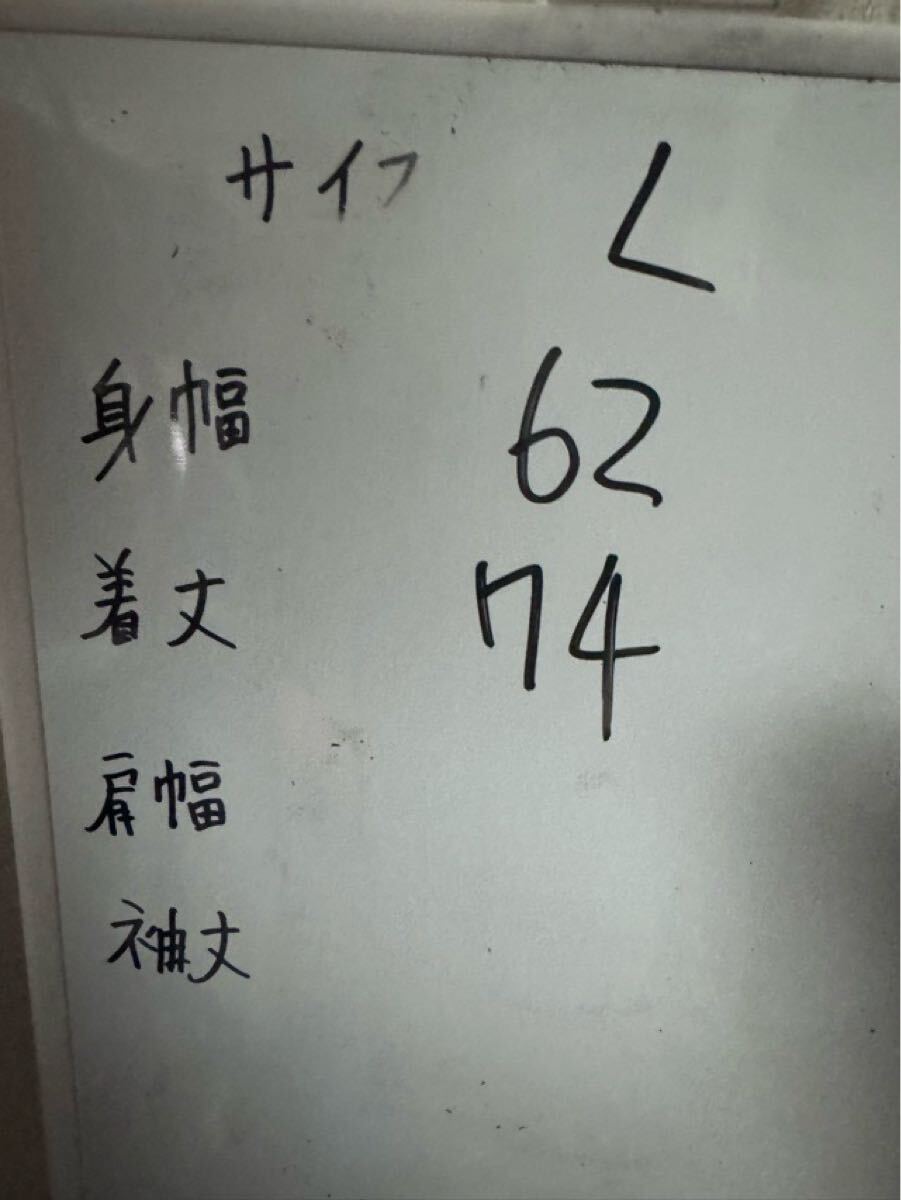 サイズ L
身幅 62
着丈 74
肩幅
袖丈